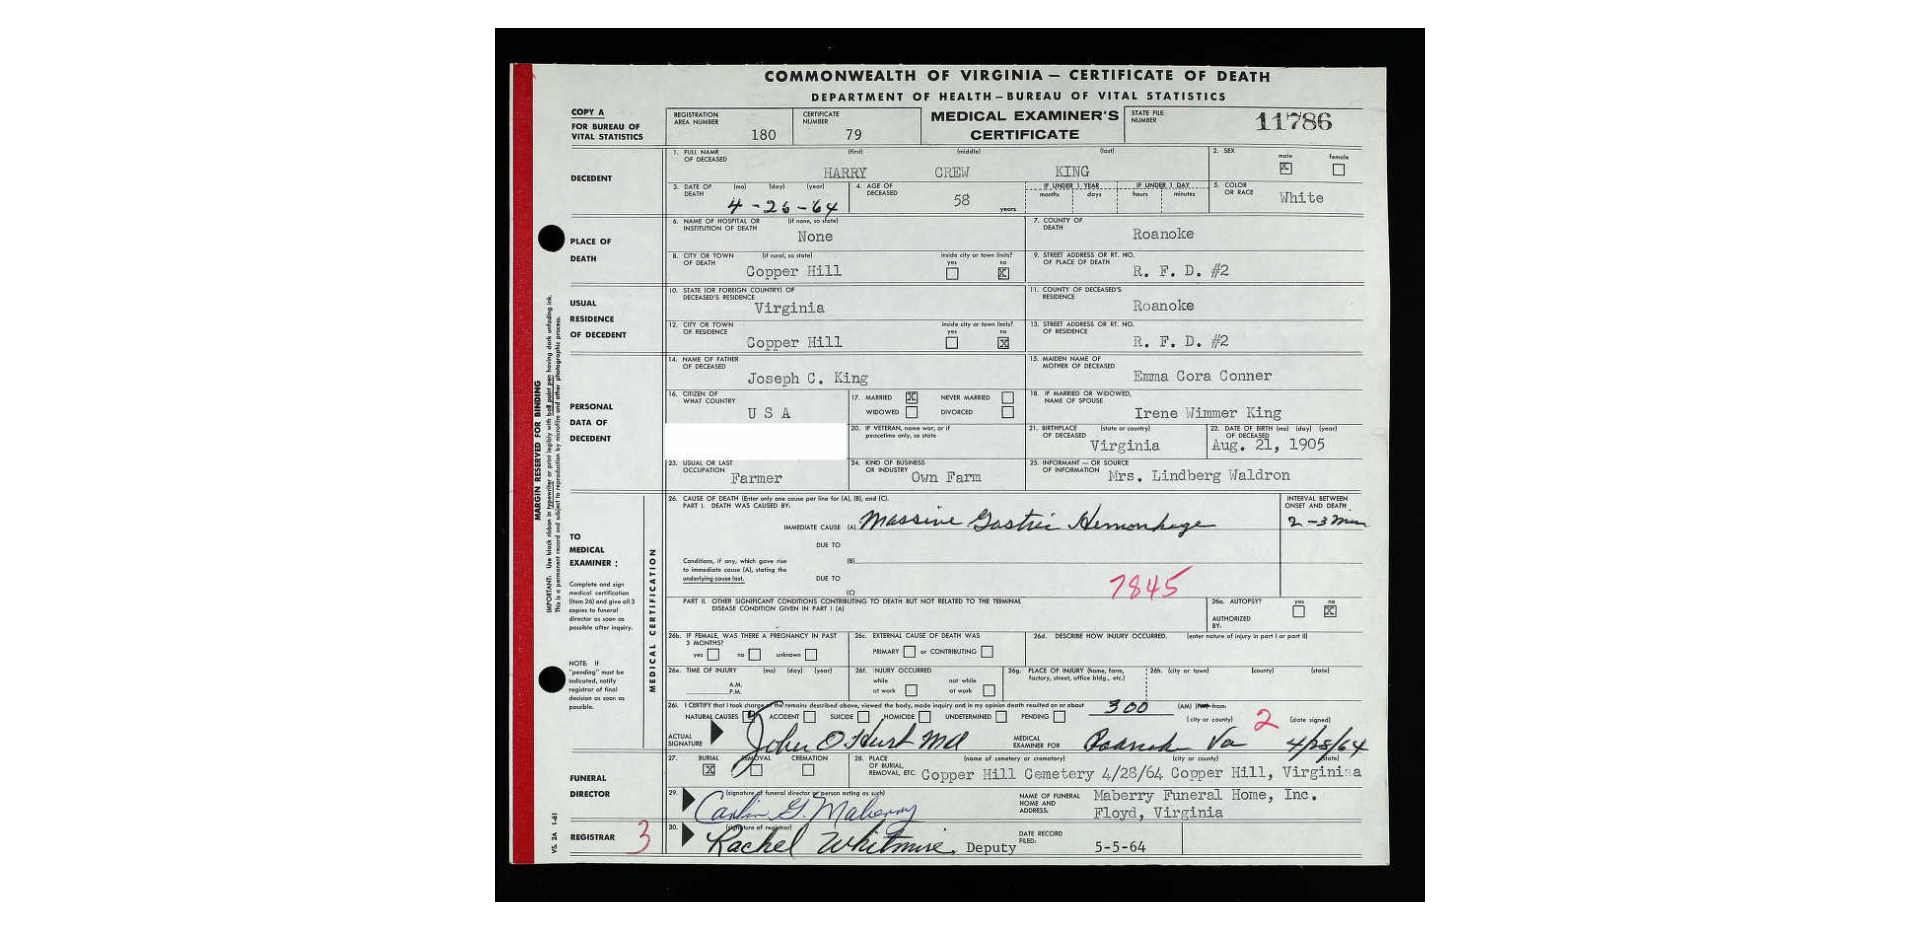 COMMONWEALTH OF VIRGINIA — CERTIFICATE OF DEATH
DEPARTMENT OF HEALTH—BUREAU OF VITAL STATISTICS
COPY A
FOR BUREAU OF
VITAL STATISTICS
REGISTRATION
AREA NUMBER
180
CERTIFICATE
NUMBER
79
MEDICAL EXAMINER'S
CERTIFICATE
STATE FILE
NUMBER
11786
DECEDENT
1. FULL NAME
OF DECEASED
(first) (middle) (last)
HARRY CREW KING
2. SEX
male female
X
3. DATE OF
DEATH
(mo) (day) (year)
4-26-64
4. AGE OF
DECEASED
58
years
IF UNDER 1 YEAR
months days
IF UNDER 1 DAY
hours minutes
5. COLOR
OR RACE
White
PLACE OF
DEATH
6. NAME OF HOSPITAL OR
INSTITUTION OF DEATH
(if none, so state)
None
7. COUNTY OF
DEATH
Roanoke
8. CITY OR TOWN
OF DEATH
(if rural, so state)
Copper Hill
inside city or town limits?
yes no
X
9. STREET ADDRESS OR RT. NO.
OF PLACE OF DEATH
R. F. D. #2
USUAL
RESIDENCE
OF DECEDENT
10. STATE (OR FOREIGN COUNTRY) OF
DECEASED'S RESIDENCE
Virginia
11. COUNTY OF DECEASED'S
RESIDENCE
Roanoke
12. CITY OR TOWN
OF RESIDENCE
Copper Hill
inside city or town limits?
yes no
X
13. STREET ADDRESS OR RT. NO.
OF RESIDENCE
R. F. D. #2
PERSONAL
DATA OF
DECEDENT
14. NAME OF FATHER
OF DECEASED
Joseph C. King
15. MAIDEN NAME OF
MOTHER OF DECEASED
Emma Cora Conner
16. CITIZEN OF
WHAT COUNTRY
U S A
17. MARRIED X NEVER MARRIED
WIDOWED DIVORCED
18. IF MARRIED OR WIDOWED,
NAME OF SPOUSE
Irene Wimmer King
20. IF VETERAN, name war, or if
peacetime only, so state
21. BIRTHPLACE (state or country)
OF DECEASED
Virginia
22. DATE OF BIRTH (mo) (day) (year)
OF DECEASED
Aug. 21, 1905
23. USUAL OR LAST
OCCUPATION
Farmer
24. KIND OF BUSINESS
OR INDUSTRY
Own Farm
25. INFORMANT — OR SOURCE
OF INFORMATION
Mrs. Lindberg Waldron
MARGIN RESERVED FOR BINDING
IMPORTANT. Use black ribbon in typewriter or print legibly with ball point pen having dark unfading ink.
This is a permanent record and subject to reproduction by microfilm and other photographic process.
TO
MEDICAL
EXAMINER:
Complete and sign
medical certification
(Item 26) and give all 3
copies to funeral
director as soon as
possible after inquiry.
NOTE: If
"pending" must be
indicated, notify
registrar of final
decision as soon as
possible.
MEDICAL CERTIFICATION
26. CAUSE OF DEATH (Enter only one cause per line for (A), (B), and (C).
PART I. DEATH WAS CAUSED BY:
IMMEDIATE CAUSE (A) Massive Gastric Hemorrhage
INTERVAL BETWEEN
ONSET AND DEATH
2-3 Min
DUE TO
Conditions, if any, which gave rise
to immediate cause (A), stating the
underlying cause last.
(B)
DUE TO
(C)
7845
PART II. OTHER SIGNIFICANT CONDITIONS CONTRIBUTING TO DEATH BUT NOT RELATED TO THE TERMINAL
DISEASE CONDITION GIVEN IN PART I (A)
26a. AUTOPSY? yes no
X
AUTHORIZED
BY:
26b. IF FEMALE, WAS THERE A PREGNANCY IN PAST
3 MONTHS?
yes no unknown
26c. EXTERNAL CAUSE OF DEATH WAS
PRIMARY or CONTRIBUTING
26d. DESCRIBE HOW INJURY OCCURRED. (enter nature of injury in part I or part II)
26e. TIME OF INJURY (mo) (day) (year)
A.M.
P.M.
26f. INJURY OCCURRED
while
at work
not while
at work
26g. PLACE OF INJURY (home, farm,
factory, street, office bldg., etc.)
26h. (city or town) (county) (state)
26i. I CERTIFY that I took charge of the remains described above, viewed the body, made inquiry and in my opinion death resulted on or about 300 (AM) from:
NATURAL CAUSES ACCIDENT SUICIDE HOMICIDE UNDETERMINED PENDING
(city or county) 2 (date signed)
ACTUAL
SIGNATURE
John O Hurt MD
MEDICAL
EXAMINER FOR
Roanoke Va 4/28/64
FUNERAL
DIRECTOR
27. BURIAL REMOVAL CREMATION
X
28. PLACE
OF BURIAL,
REMOVAL, ETC.
(name of cemetery or crematory) (city or county) (state)
Copper Hill Cemetery 4/28/64 Copper Hill, Virginia
29. (signature of funeral director or person acting as such)
Carlin G. Maberry
NAME OF FUNERAL
HOME AND
ADDRESS:
Maberry Funeral Home, Inc.
Floyd, Virginia
REGISTRAR
3
30. (signature of registrar)
Rachel Whitmire, Deputy
DATE RECORD
FILED:
5-5-64
VS. 2A 1-61